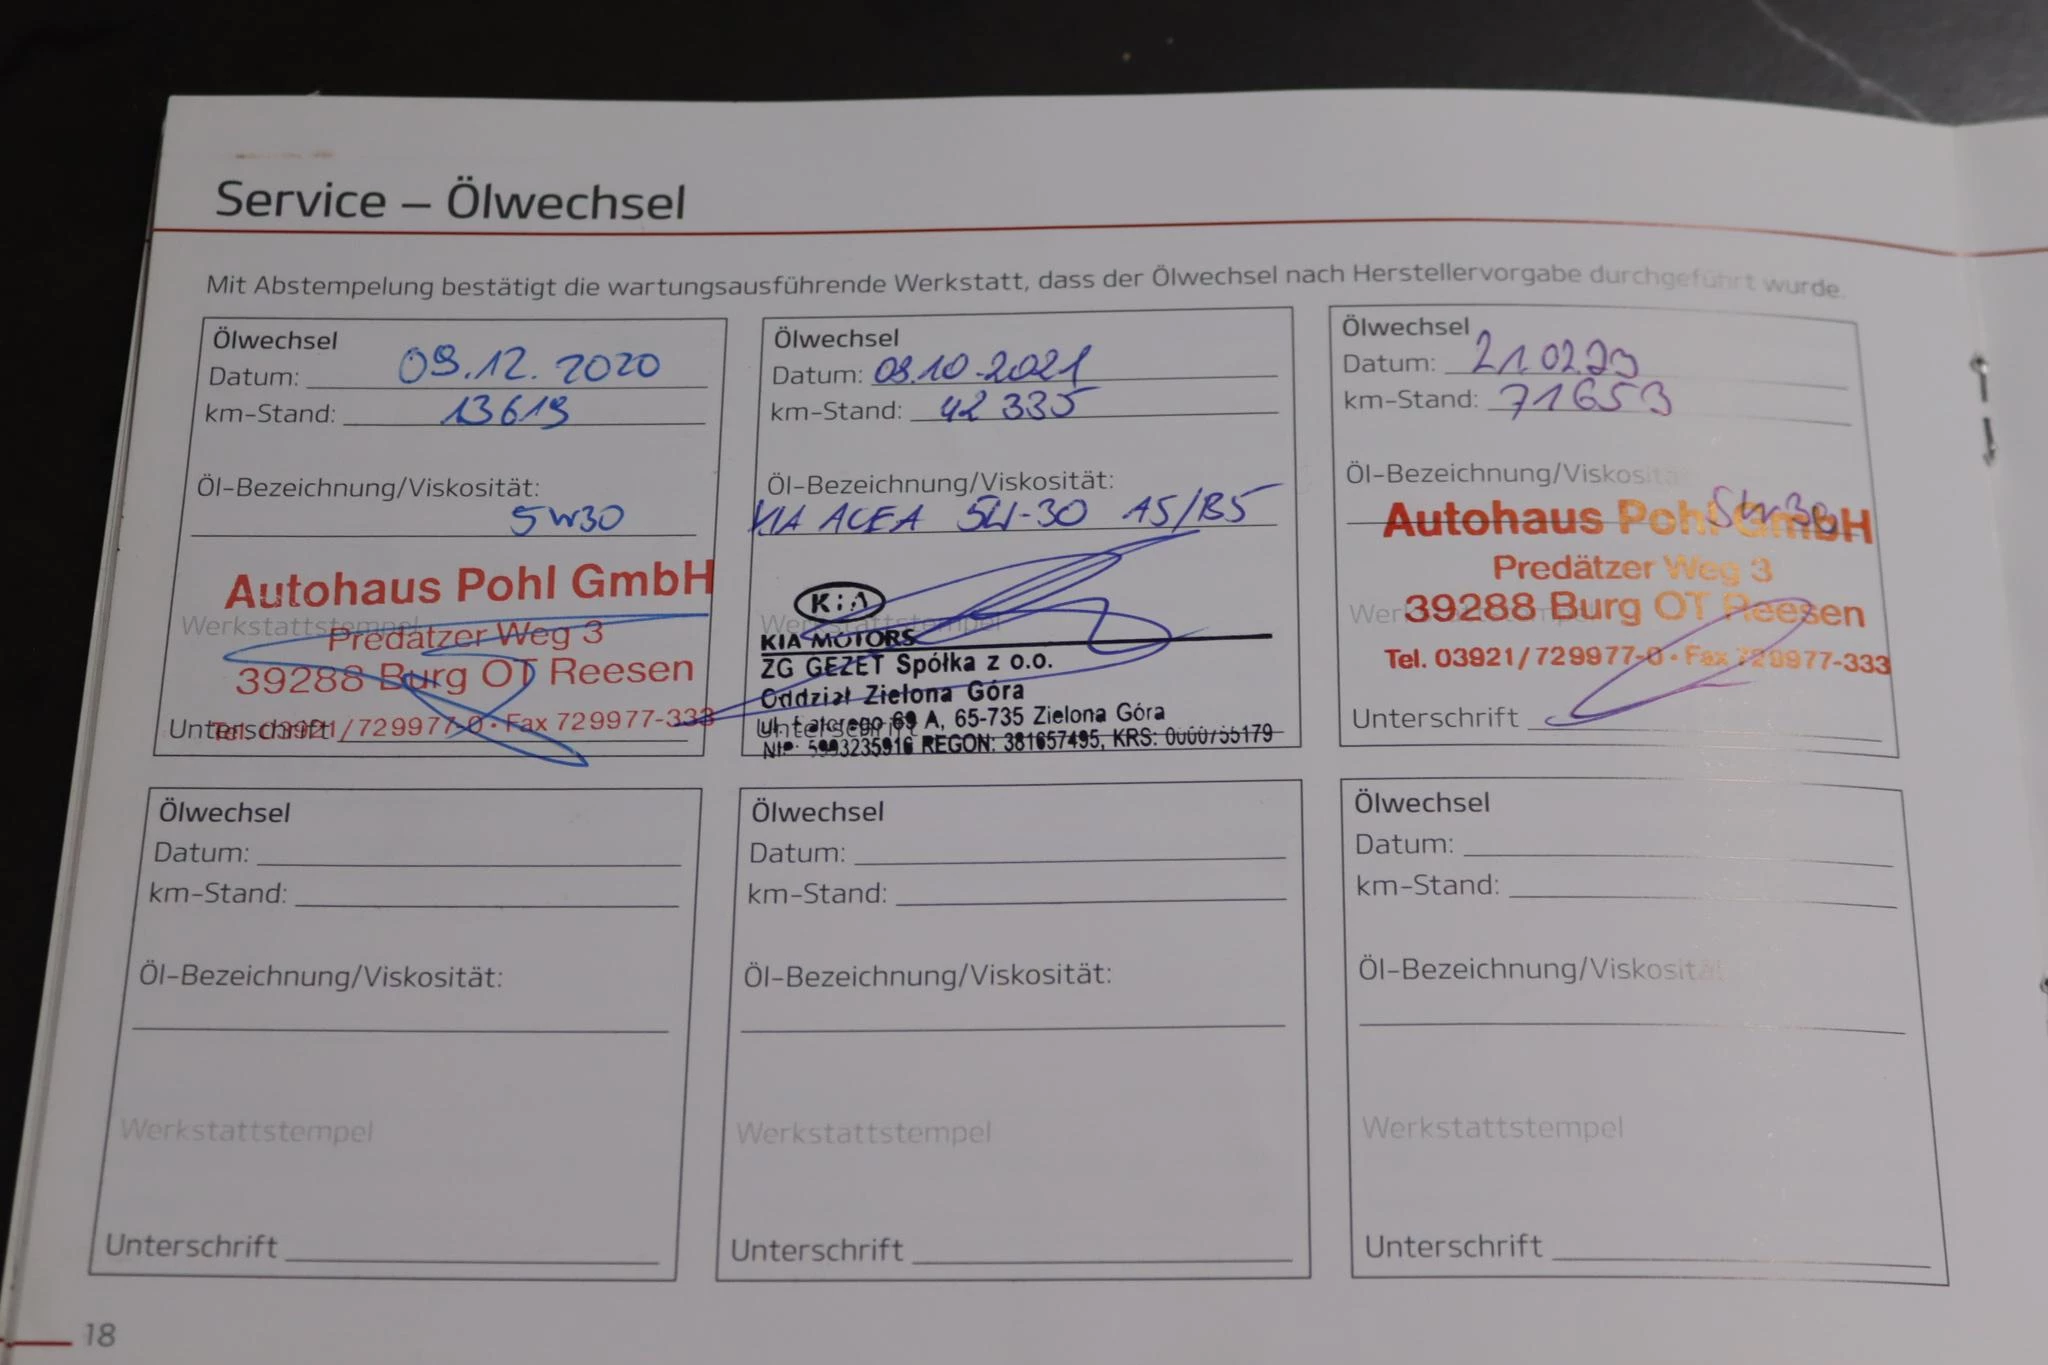 Service – Ölwechsel
Mit Abstempelung bestätigt die wartungsausführende Werkstatt, dass der Ölwechsel nach Herstellervorgabe durchgeführt wurde.
Ölwechsel
Datum: 09.12.2020
km-Stand: 13619
Öl-Bezeichnung/Viskosität:
5W30
Autohaus Pohl GmbH
Werkstattstempel
Predätzer Weg 3
39288 Burg OT Reesen
Tel. 03921/729977-0 · Fax 729977-333
Unterschrift
Ölwechsel
Datum: 09.10.2021
km-Stand: 42 335
Öl-Bezeichnung/Viskosität:
KIA ACEA 5W-30 A5/B5
KIA
Werkstattstempel
KIA MOTORS
ZG GEZET Spółka z o.o.
Oddział Zielona Góra
69 A, 65-735 Zielona Góra
Unterschrift
NIP: 5993235916 REGON: 381657495, KRS: 0000755179
Ölwechsel
Datum: 21.02.23
km-Stand: 71653
Öl-Bezeichnung/Viskosität
5W30
Autohaus Pohl GmbH
Predätzer Weg 3
Werkstattstempel
39288 Burg OT Reesen
Tel. 03921/729977-0 · Fax 729977-333
Unterschrift
Ölwechsel
Datum:
km-Stand:
Öl-Bezeichnung/Viskosität:
Werkstattstempel
Unterschrift
Ölwechsel
Datum:
km-Stand:
Öl-Bezeichnung/Viskosität:
Werkstattstempel
Unterschrift
Ölwechsel
Datum:
km-Stand:
Öl-Bezeichnung/Viskosität
Werkstattstempel
Unterschrift
18